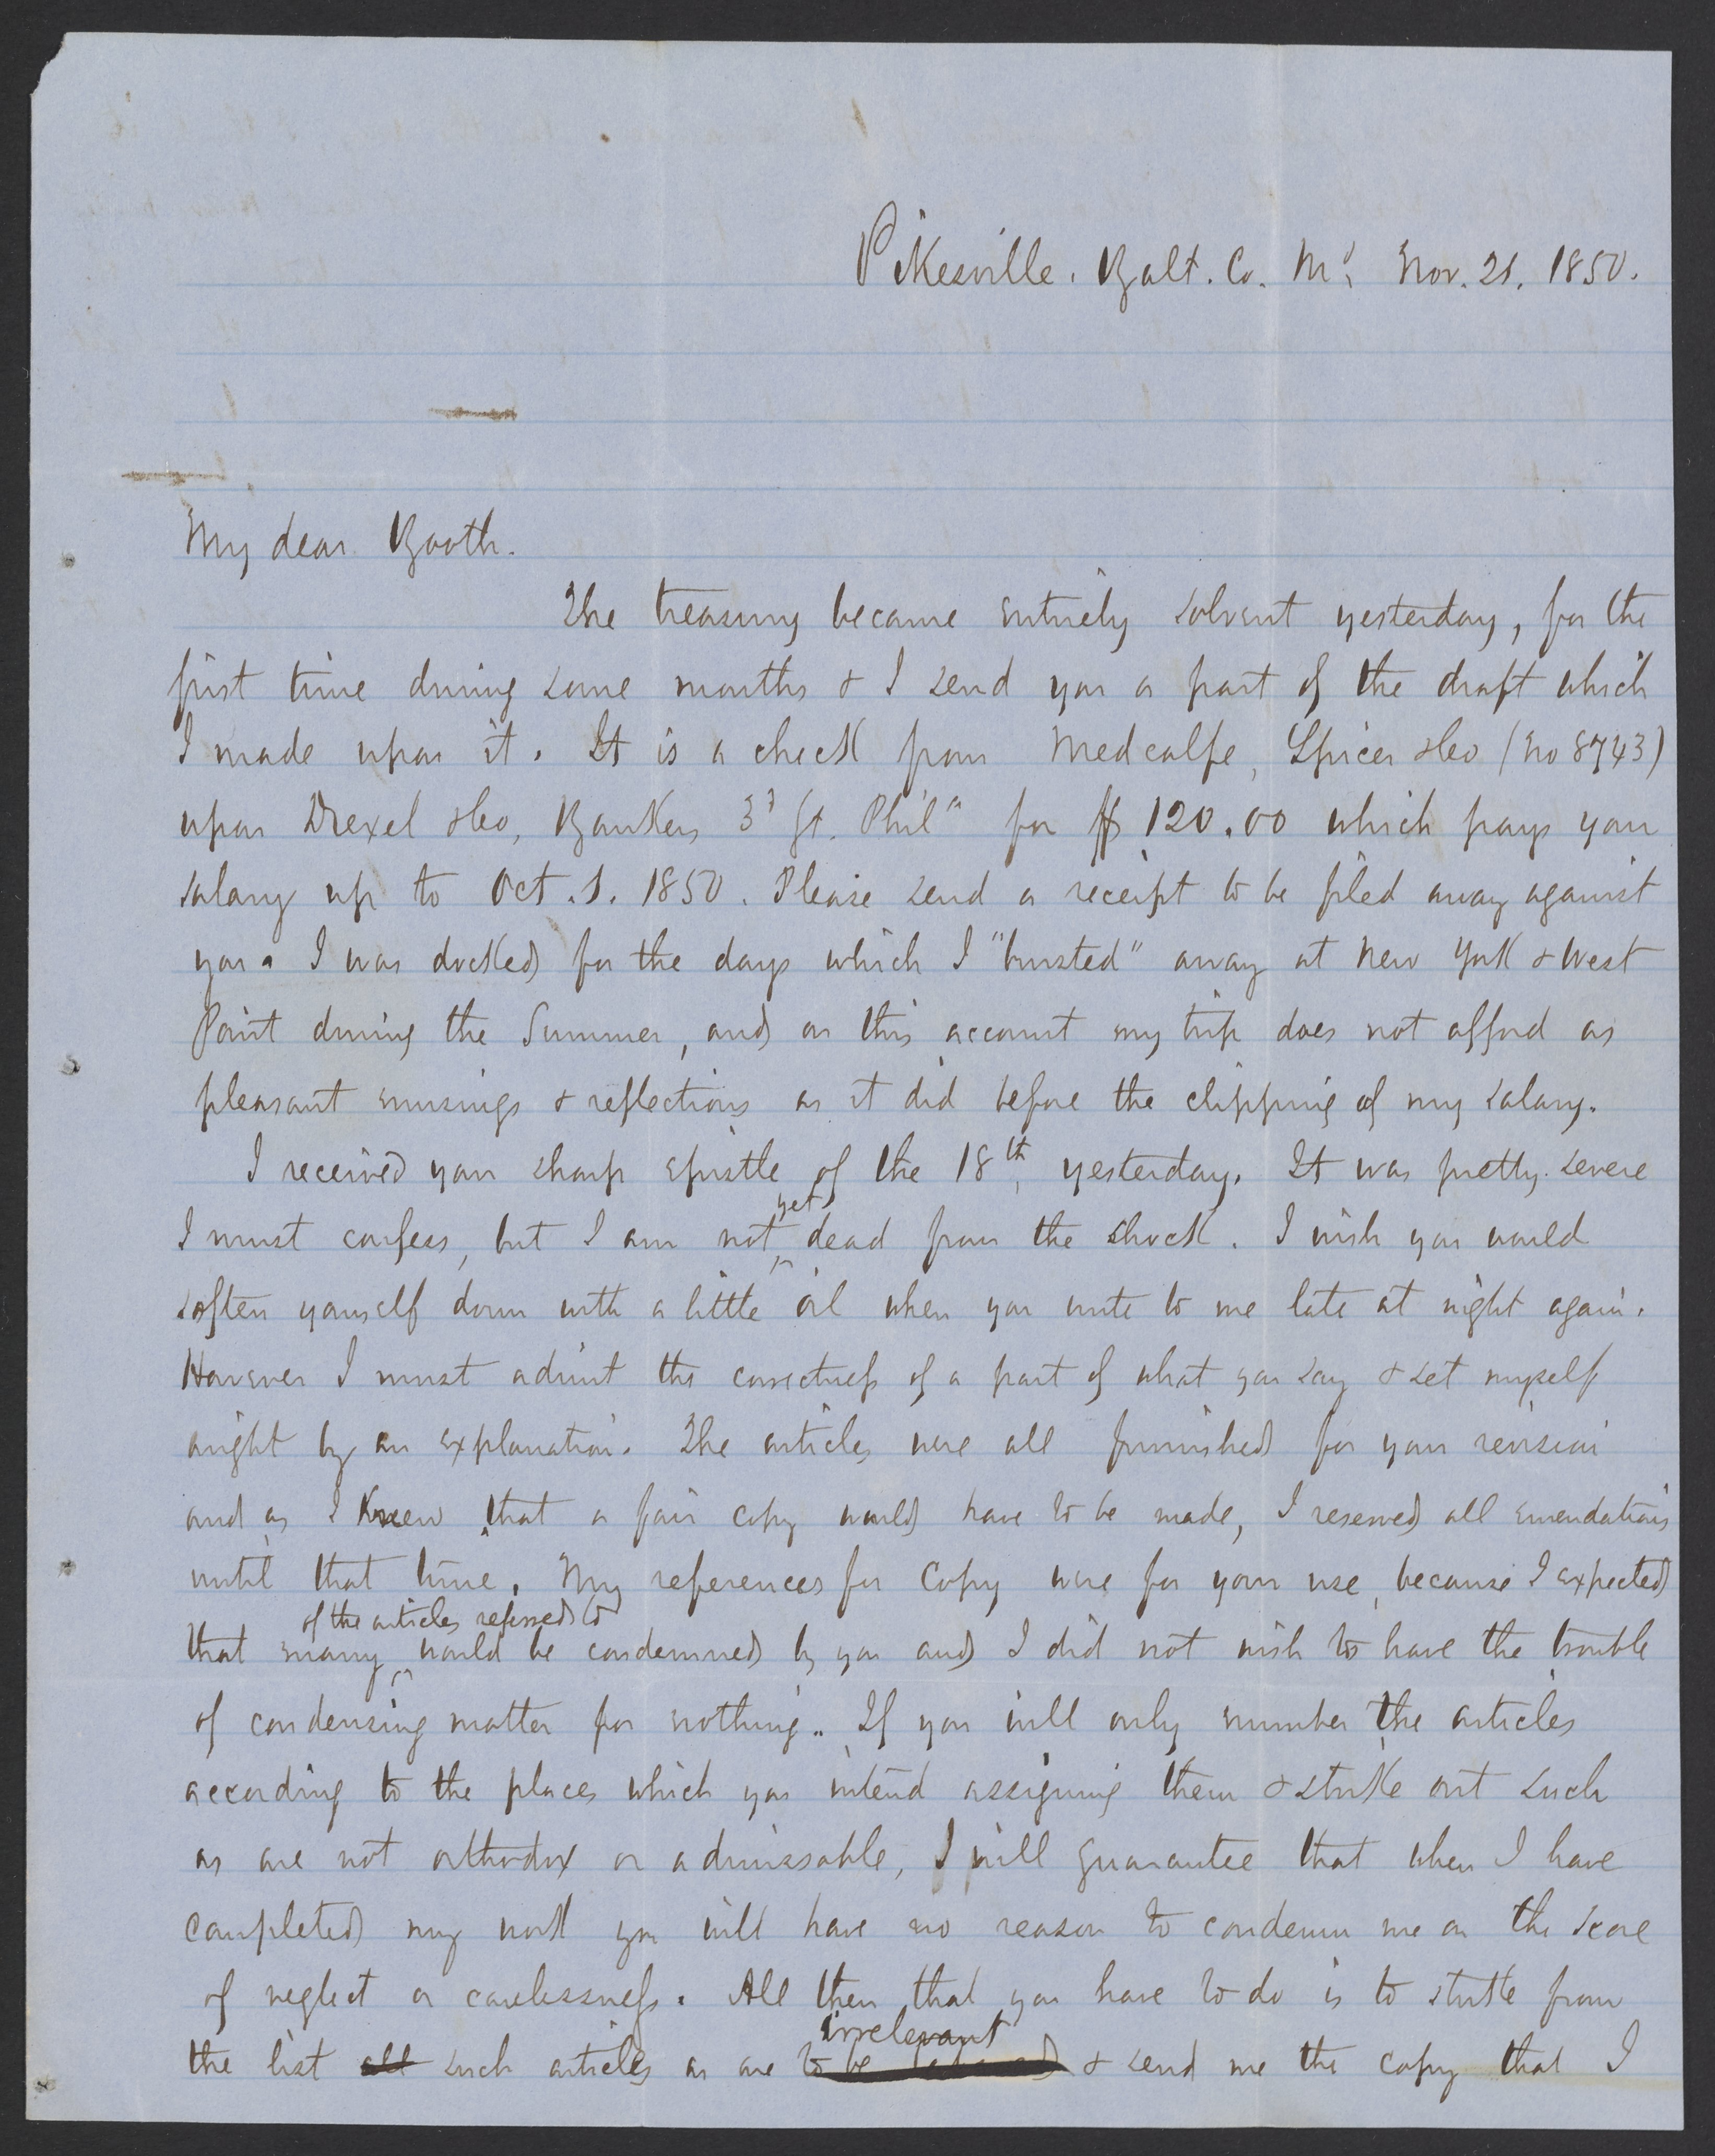 Pikesville. Balt. Co. Md. Nov. 21. 1850.
My dear Booth.
The treasury became entirely solvent yesterday, for the
first time during some months & I send you a part of the draft which
I made upon it. It is a check from Medcalfe, Spicer & Co (No 8743)
upon Drexel & Co, Bankers 3d St. Phila for $120.00 which pays your
salary up to Oct. 1. 1850. Please send a receipt to be filed away against
you. I was docked for the days which I "busted" away at New York & West
Point during the Summer, and on this account my trip does not afford as
pleasant musings & reflections as it did before the clipping of my salary.
I received your sharp epistle of the 18th, yesterday. It was pretty severe
I must confess, but I am not yet dead from the shock. I wish you would
soften yourself down with a little oil when you write to me late at night again.
However I must admit the correctness of a part of what you say & set myself
aright by an explanation. The articles were all furnished for your revision
and as I knew that a fair copy would have to be made, I reserved all emendations
until that time. My references for Copy were for your use, because I expected
that many of the articles referred to would be condemned by you and I did not wish to have the trouble
of condensing matter for nothing.. If you will only number the articles
according to the places which you intend assigning them & strike out such
as are not orthodox or admissable, I will guarantee that when I have
completed my work you will have no reason to condemn me on the score
of neglect or carelessness. All then that you have to do is to strike from
the list all such articles as are to be irrelevant & send me the copy that I